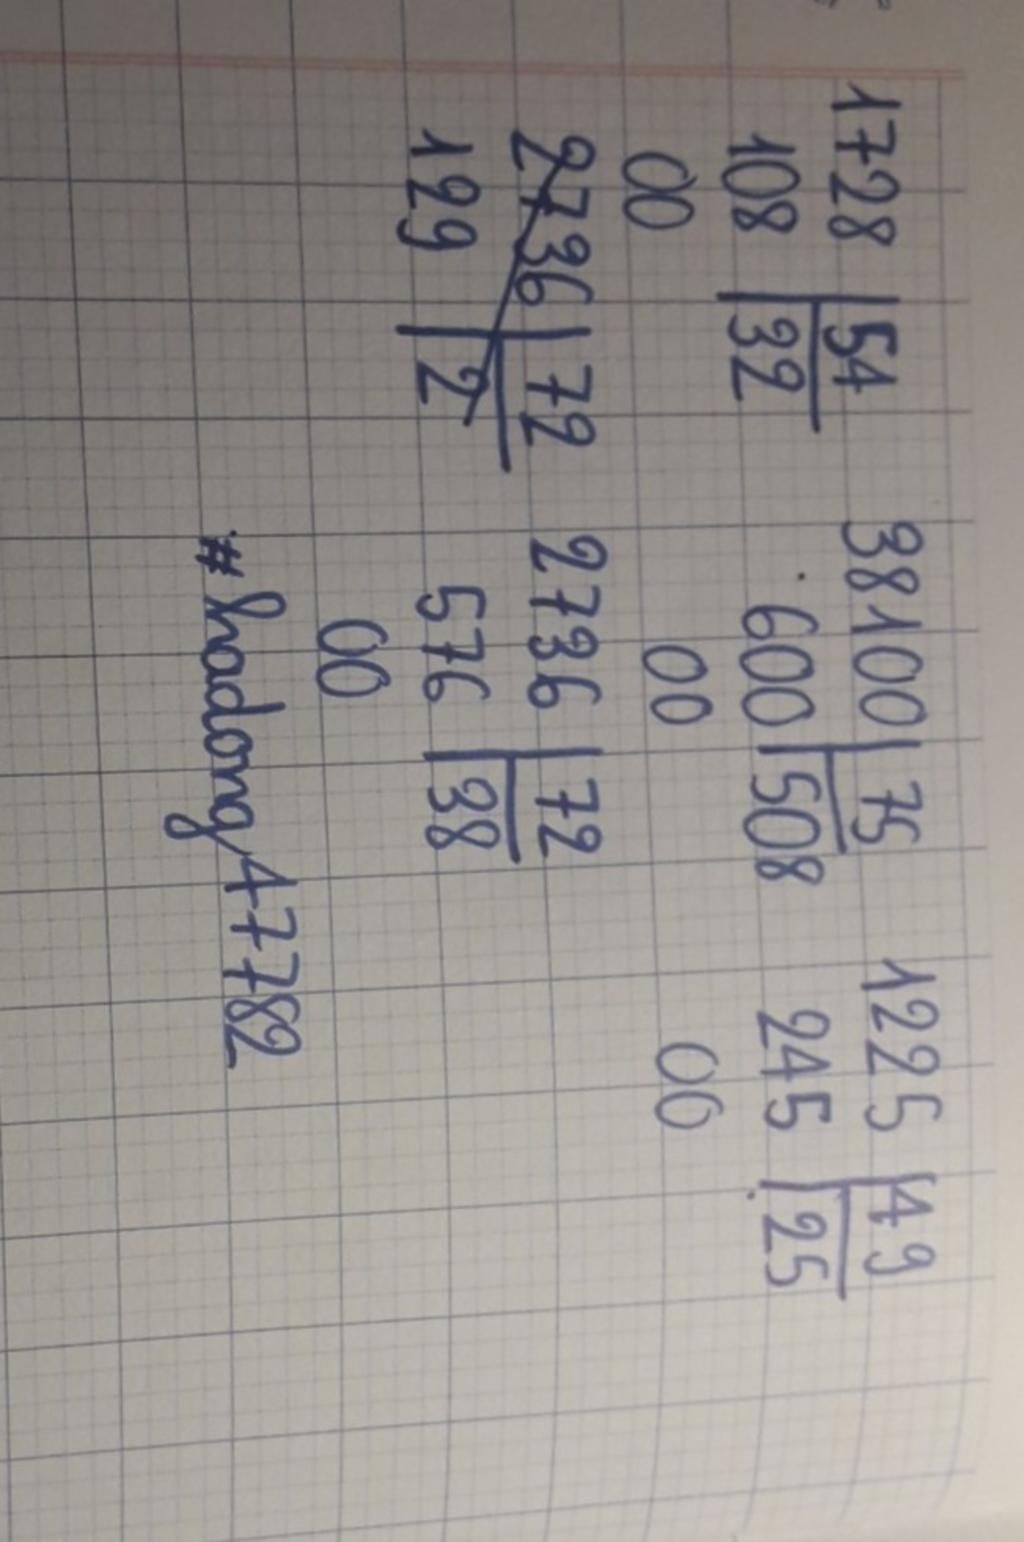 1728 54 38100 75 1225 49
108 32 600 508 245 25
00 00 00
2736 72 2736 72
129 2 576 38
00
#hadong47782